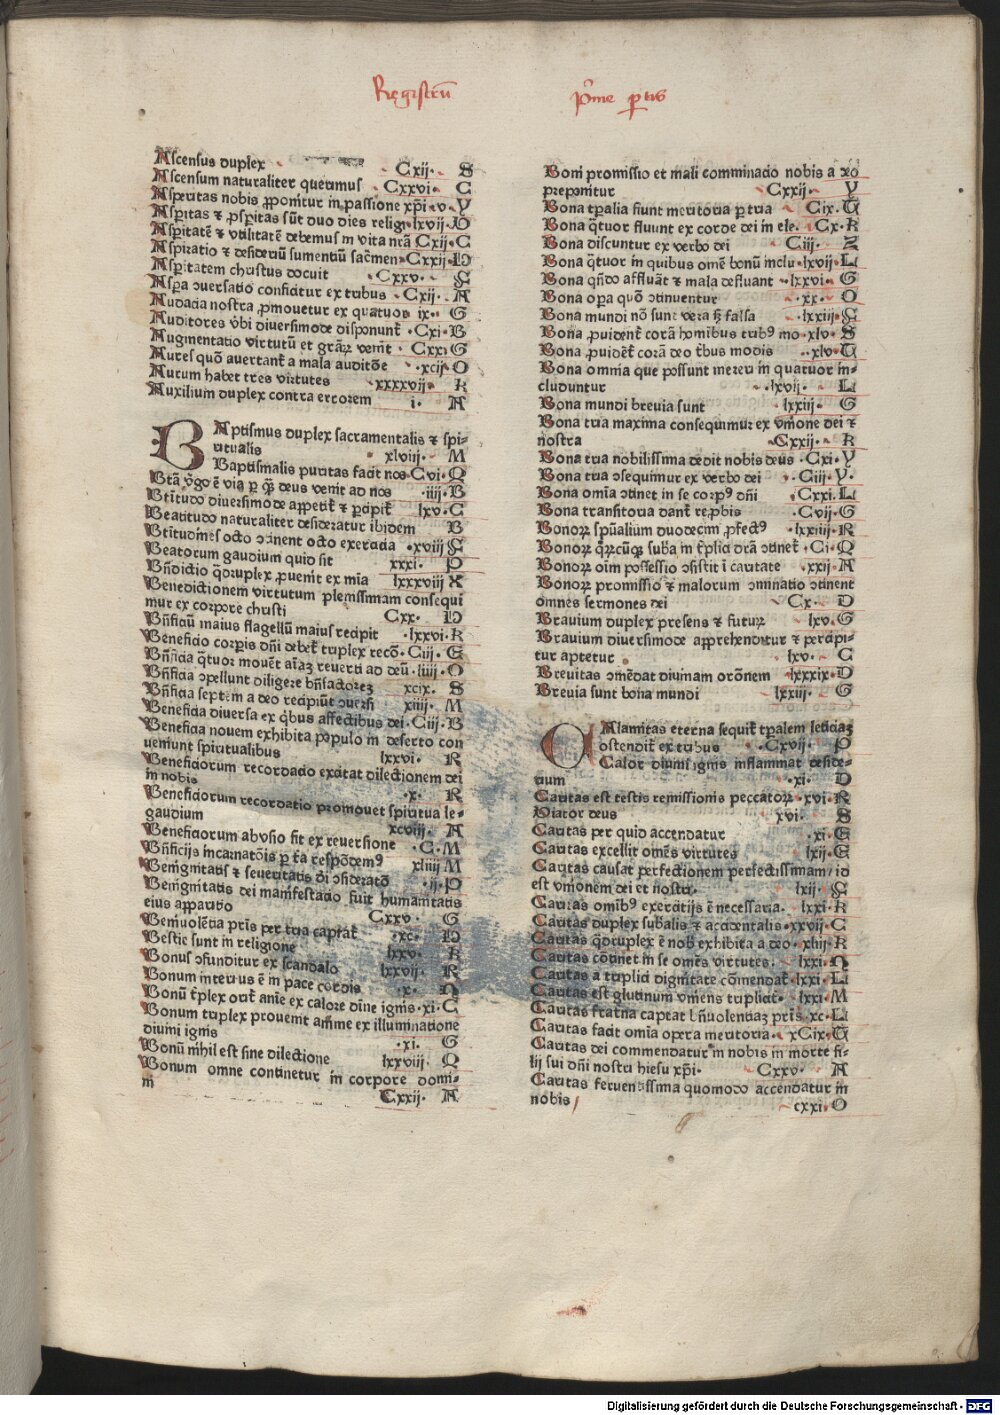 Registrū
p̄me ꝑtis
Ascensus duplex Cxij. S
Ascensum naturaliter querimus Cxxvi. C
Asperitas nobis ꝓponitur in passione xp̄i .v. Y
Asꝑitas ⁊ ꝓsꝑitas sūt duo dies religi lxvij. D
Asꝑitatē ⁊ vtilitatē debemus in vita nrā Cxij. C
Aspiratio ⁊ desideriū sumentiū sac̄men Cxxij.
Asꝑitatem christus docuit Cxxv.
Asꝑa ↄuersatio conficitur ex tribus Cxij. A
Audacia nostra ꝓmouetur ex quatuor ix. G
Auditores v̄bi diuersimode disponunt᷑ .Cxi. B
Augmentatio virtutū et grāꝝ venit Cxxi G
Aures quō auertant᷑ a mala auditōe .xcij. O
Aurum habet tres virtutes xxxxvij. R
Auxilium duplex contra errorem i. A
BAptismus duplex sacramentalis ⁊ spi-
ritualis xlviij. M
Baptismalis puritas facit nos .Cvi. Q
Btā v̄go ē via ꝑ quā deus venit ad nos .iiij. B
Btītudo diuersimode appetit᷑ ⁊ ꝑcipit᷑ lxv. C
Beatitudo naturaliter desideratur ibidem B
Btītudines octo ↄtinent octo exercicia .xviij
Beatorum gaudium quid sit xxxi. P
Bn̄dictio q̄druplex ꝓuenit ex mīa lxxxviij X
Benedictionem virtutum plenissimam consequi
mur ex corpore christi Cxx.
Bn̄ficiū maius flagellū maius recipit .lxxvi. R
Beneficio corꝑis dn̄i debet᷑ triplex recō .Ciij. E
Bn̄ficia q̄tuor mouēt aīaꝫ reuerti ad deū .liiij. O
Bn̄ficia ↄpellunt diligere bn̄factoreꝫ xcix. S
Bn̄ficia septem a deo recipiūt ↄuersi xiiij. M
Beneficia diuersa ex q̄bus affectibus dei .Ciij. B
Beneficia nouem exhibita populo in deserto con
ueniunt spiritualibus lxxvi. R
Beneficiorum recordacio excitat dilectionem dei
in nobis .x. R
Beneficiorum recordatio promouet spiritua le-
gaudium xcviij. A
Beneficiorum abusio fit ex reuersione .C. M
Bn̄ficijs incarnatōis ꝑ tria respōdemꝰ xliiij M
Benignitatis ⁊ seueritatis dī ↄsideratō .ij. P
Benignitatis dei manifestacio fuit humanitatis
eius apparitio Cxxv. G
Beniuolētia pr̄is per tria captat᷑ .xc.
Bestie sunt in religione lxxv. R
Bonus ↄfunditur ex scandalo lxxvij. R
Bonum interius ē in pace cordis .x.
Bonū t̄plex orit᷑ anīe ex calore diuīe ignis .xi. C
Bonum triplex prouenit anime ex illuminatione
diuini ignis .xi. G
Bonū nihil est sine dilectione lxxviij. Q
Bonum omne continetur in corpore domi-
ni Cxxij. A
Boni promissio et mali comminacio nobis a deo
preponitur Cxxij. Y
Bona tꝑalia fiunt meritoria ꝑ tria Cix.
Bona q̄tuor fluunt ex corde dei in ele. Cx. R
Bona discuntur ex verbo dei Ciij. Z
Bona q̄tuor in quibus omē bonū inclu .lxvij. L
Bona qn̄do affluāt ⁊ mala defluant .lxxvi. G
Bona oꝑa quō ↄtinentur .xx. O
Bona mundi nō sunt vera sꝫ falsa .lxxiij.
Bona ꝓuident᷑ corā hominibus tribꝰ mo .xlv. S
Bona ꝓuidēt᷑ corā deo tribus modis .xlv.
Bona omnia que possunt mereri in quatuor in-
cluduntur .lxvij. L
Bona mundi breuia sunt lxxiij. G
Bona tria maxima consequimur ex vnione dei ⁊
nostra Cxxij. R
Bona tria nobilissima dedit nobis deus .Cxi. Y
Bona tria ↄsequimur ex verbo dei .Ciij. Y.
Bona omīa ↄtinet in se corpꝰ dn̄i .Cxxi. L
Bona transitoria dant᷑ reꝓbis .Cvij. G
Bonoꝝ spūalium duodecim ꝓfectꝰ .lxxiiij. R
Bonoꝝ q̄rūcūqꝫ suba in t̄plici drā ↄtinet᷑ .Ci. Q
Bonoꝝ oīm possessio ↄsistit ī caritate .xxij. A
Bonoꝝ promissio ⁊ malorum ↄminatio ↄtinent
omnes sermones dei Cx. D
Brauium duplex presens ⁊ futuꝝ lxv. G
Brauium diuersimode apprehenditur ⁊ percipi-
tur apretur lxv. C
Breuitas ↄmēdat diuinam orōnem lxxxix. D
Breuia sunt bona mundi lxxiij. G
CAlamitas eterna sequit᷑ tꝑalem leticiaꝫ
ostendit᷑ ex tribus .Cxvij. P
Calor diuini ignis inflammat deside-
rium .xi. D
Caritas est testis remissionis peccatoꝝ .xvi. R
Viator deus xvi. S
Caritas per quid accendatur .xi. E
Caritas excellit omēs virtutes lxij. E
Caritas causat perfectionem perfectissimam / id
est vnionem dei et nostri. lxij.
Caritas omibꝰ exercitijs ē necessaria. lxxi. R
Caritas duplex subalis ⁊ accidentalis .xxvij. C
Caritas q̄druplex ē nob̄ exhibita a deo .xliij. R
Caritas cōtinet in se omēs virtutes. lxxi.
Caritas a triplici dignitate cōmendat᷑ .lxxi. L
Caritas est glutinum vniens tripliciter .lxxi. M
Caritas fr̄atna captat bn̄uolentiaꝫ pr̄is .xc. L
Caritas facit omīa opera meritoria. xCix.
Caritas dei commendatur in nobis in morte fi-
lij sui dn̄i nostri hiesu xp̄i. Cxxv. A
Caritas feruentissima quomodo accendatur in
nobis / cxxi. O
Digitalisierung gefördert durch die Deutsche Forschungsgemeinschaft - DFG